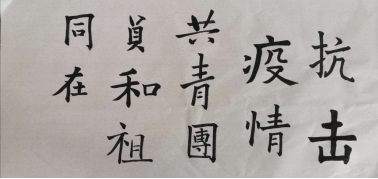 抗击
疫情
共青團
員和祖
同在